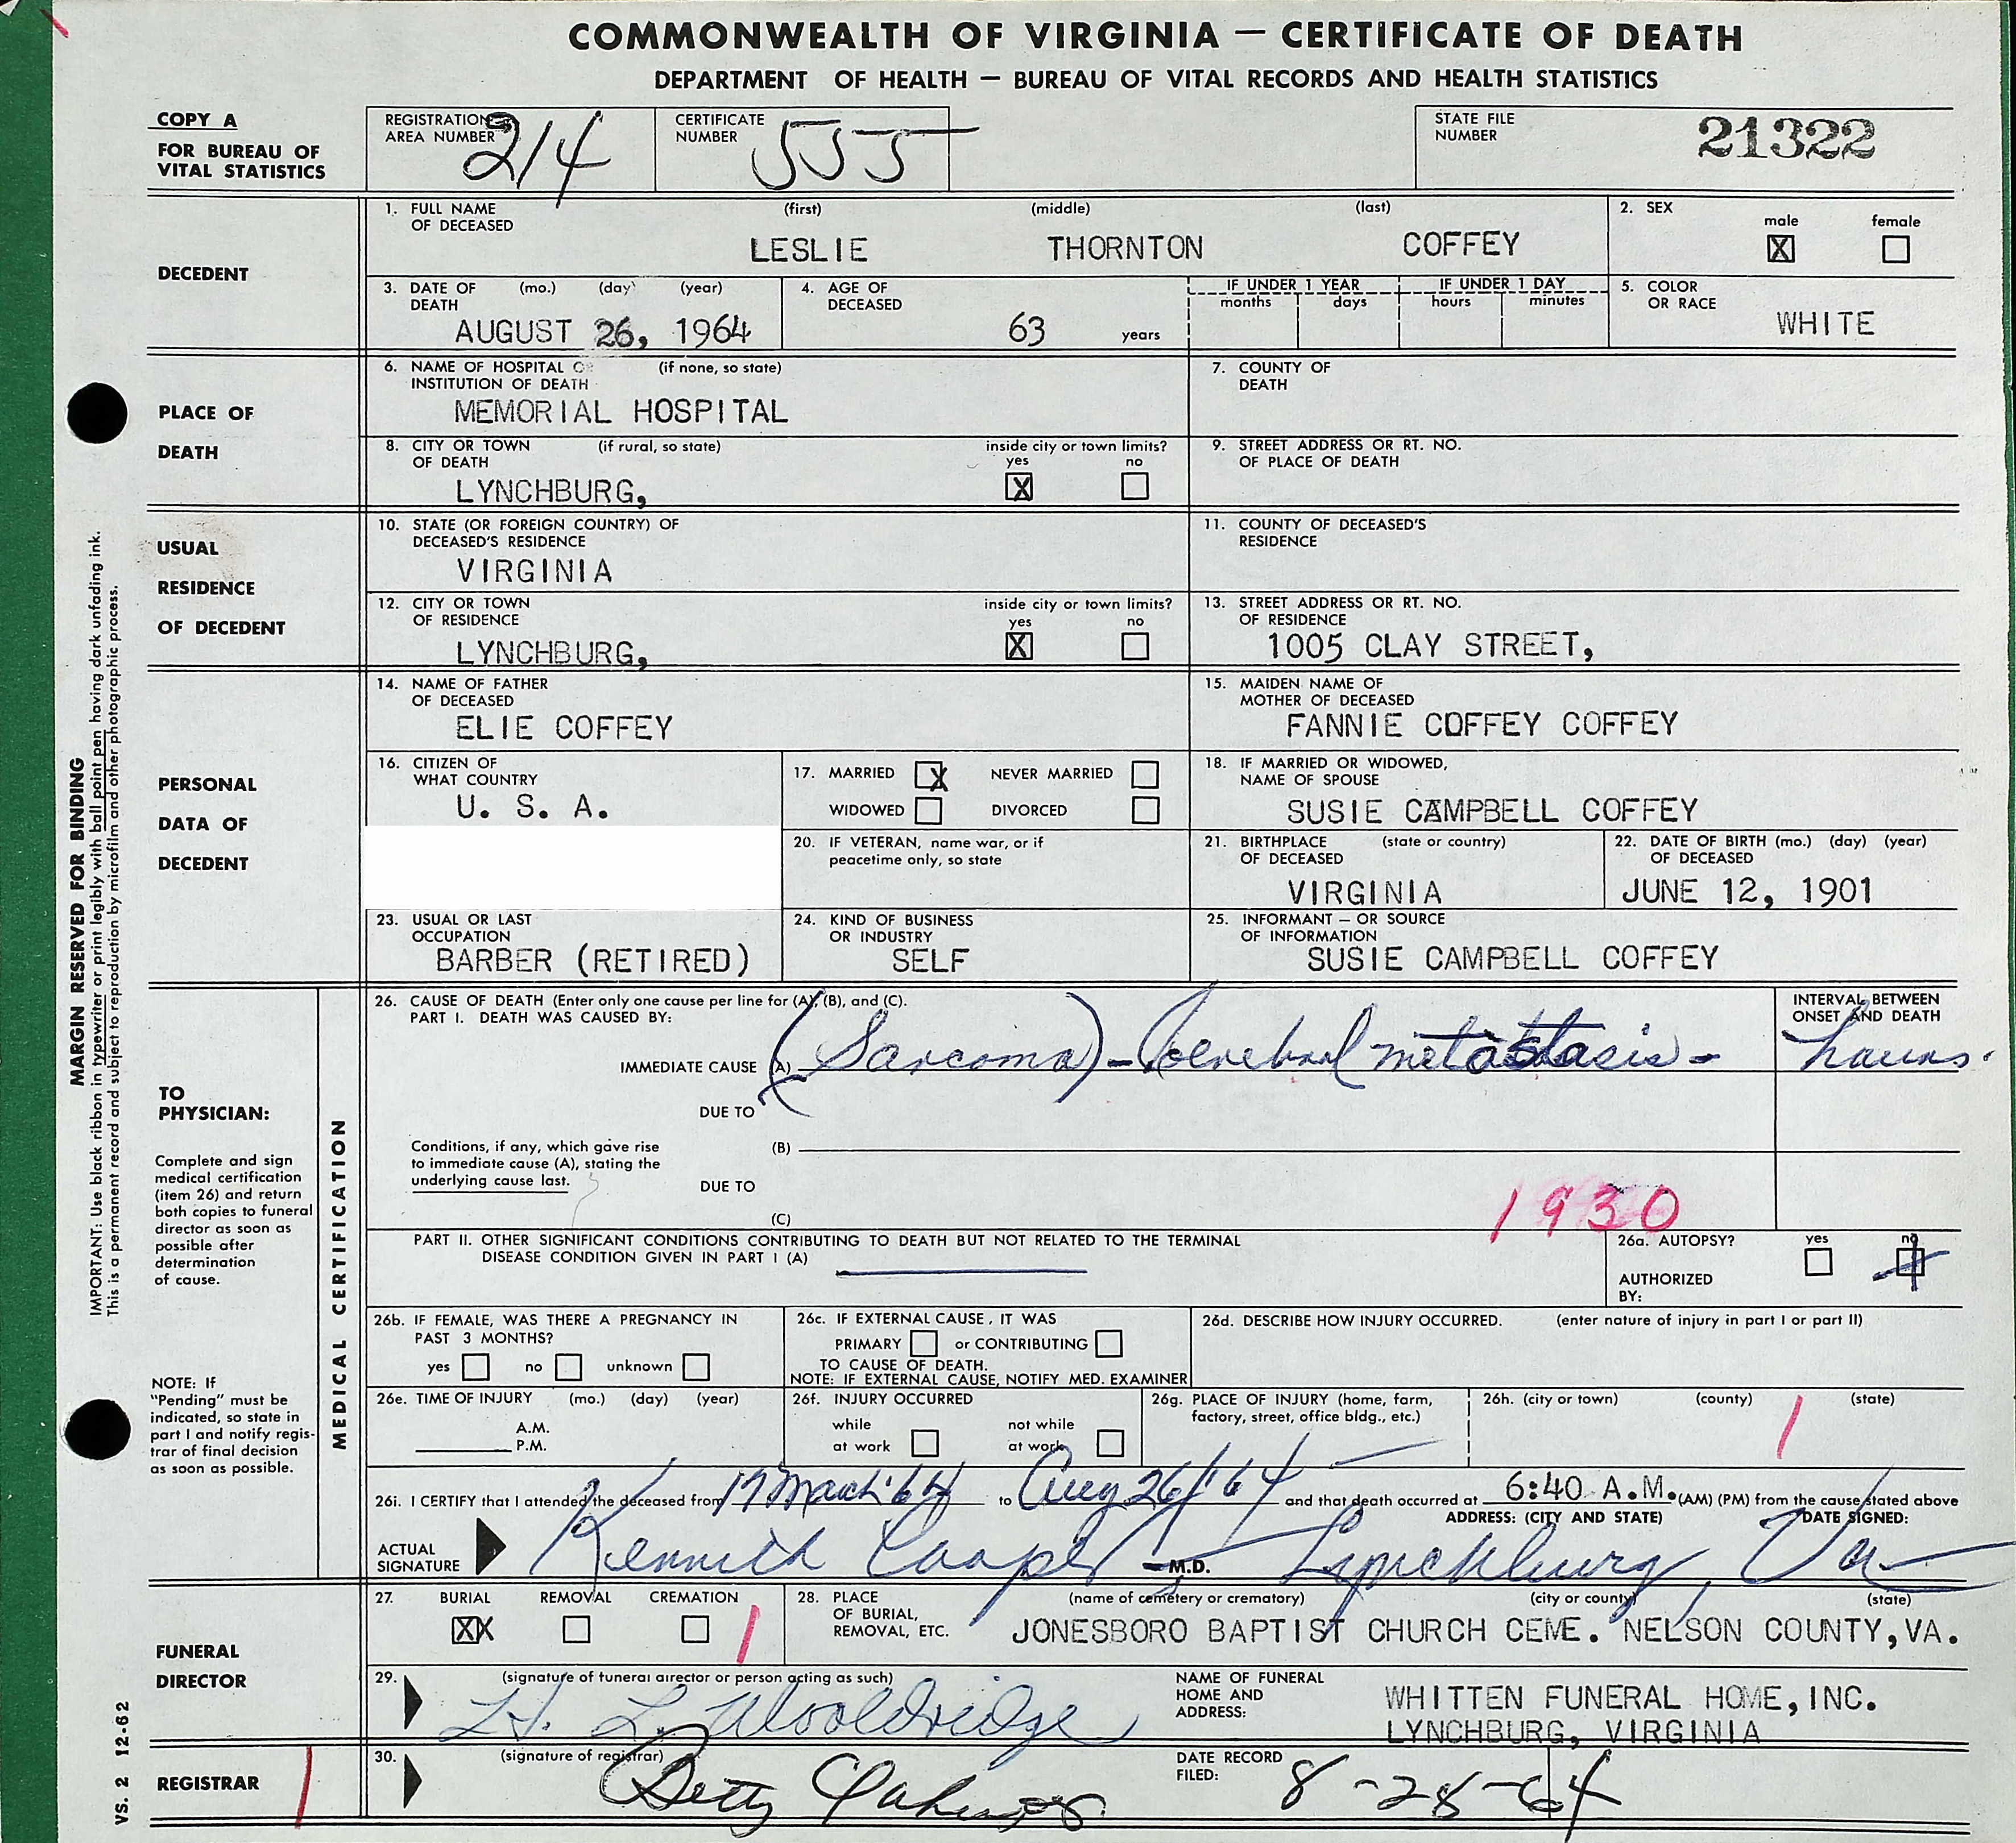 COMMONWEALTH OF VIRGINIA — CERTIFICATE OF DEATH
DEPARTMENT OF HEALTH — BUREAU OF VITAL RECORDS AND HEALTH STATISTICS
COPY A
FOR BUREAU OF
VITAL STATISTICS
REGISTRATION AREA NUMBER 214
CERTIFICATE NUMBER 555
STATE FILE NUMBER 21322
DECEDENT
1. FULL NAME OF DECEASED (first) (middle) (last)
LESLIE THORNTON COFFEY
2. SEX male X female
3. DATE OF DEATH (mo.) (day) (year)
AUGUST 26, 1964
4. AGE OF DECEASED
63 years
IF UNDER 1 YEAR months days
IF UNDER 1 DAY hours minutes
5. COLOR OR RACE
WHITE
PLACE OF
DEATH
6. NAME OF HOSPITAL O (if none, so state)
INSTITUTION OF DEATH
MEMORIAL HOSPITAL
7. COUNTY OF DEATH
8. CITY OR TOWN OF DEATH (if rural, so state)
LYNCHBURG,
inside city or town limits? yes X no
9. STREET ADDRESS OR RT. NO. OF PLACE OF DEATH
USUAL
RESIDENCE
OF DECEDENT
10. STATE (OR FOREIGN COUNTRY) OF DECEASED'S RESIDENCE
VIRGINIA
11. COUNTY OF DECEASED'S RESIDENCE
12. CITY OR TOWN OF RESIDENCE
LYNCHBURG,
inside city or town limits? yes X no
13. STREET ADDRESS OR RT. NO. OF RESIDENCE
1005 CLAY STREET,
PERSONAL
DATA OF
DECEDENT
14. NAME OF FATHER OF DECEASED
ELIE COFFEY
15. MAIDEN NAME OF MOTHER OF DECEASED
FANNIE COFFEY COFFEY
16. CITIZEN OF WHAT COUNTRY
U. S. A.
17. MARRIED X NEVER MARRIED
WIDOWED DIVORCED
18. IF MARRIED OR WIDOWED, NAME OF SPOUSE
SUSIE CAMPBELL COFFEY
20. IF VETERAN, name war, or if peacetime only, so state
21. BIRTHPLACE OF DECEASED (state or country)
VIRGINIA
22. DATE OF BIRTH OF DECEASED (mo.) (day) (year)
JUNE 12, 1901
23. USUAL OR LAST OCCUPATION
BARBER (RETIRED)
24. KIND OF BUSINESS OR INDUSTRY
SELF
25. INFORMANT — OR SOURCE OF INFORMATION
SUSIE CAMPBELL COFFEY
TO
PHYSICIAN:
Complete and sign
medical certification
(item 26) and return
both copies to funeral
director as soon as
possible after
determination
of cause.
NOTE: If
"Pending" must be
indicated, so state in
part I and notify regis-
trar of final decision
as soon as possible.
MEDICAL CERTIFICATION
26. CAUSE OF DEATH (Enter only one cause per line for (A), (B), and (C).
PART I. DEATH WAS CAUSED BY:
INTERVAL BETWEEN ONSET AND DEATH
IMMEDIATE CAUSE (A) (Sarcoma) - Cerebral metastasis - hours.
DUE TO
Conditions, if any, which gave rise
to immediate cause (A), stating the
underlying cause last.
(B)
DUE TO
(C)
1930
PART II. OTHER SIGNIFICANT CONDITIONS CONTRIBUTING TO DEATH BUT NOT RELATED TO THE TERMINAL
DISEASE CONDITION GIVEN IN PART I (A)
26a. AUTOPSY? yes no
AUTHORIZED BY:
26b. IF FEMALE, WAS THERE A PREGNANCY IN PAST 3 MONTHS?
yes no unknown
26c. IF EXTERNAL CAUSE, IT WAS
PRIMARY or CONTRIBUTING
TO CAUSE OF DEATH.
NOTE: IF EXTERNAL CAUSE, NOTIFY MED. EXAMINER
26d. DESCRIBE HOW INJURY OCCURRED. (enter nature of injury in part I or part II)
26e. TIME OF INJURY (mo.) (day) (year)
A.M.
P.M.
26f. INJURY OCCURRED
while at work not while at work
26g. PLACE OF INJURY (home, farm, factory, street, office bldg., etc.)
26h. (city or town) (county) (state)
1
26i. I CERTIFY that I attended the deceased from 17 March '64 to Aug 26/'64 and that death occurred at 6:40 A.M. (AM) (PM) from the cause stated above
ADDRESS: (CITY AND STATE) DATE SIGNED:
ACTUAL SIGNATURE Kenneth Cooper M.D. Lynchburg, Va
FUNERAL
DIRECTOR
27. BURIAL XX REMOVAL CREMATION
1
28. PLACE OF BURIAL, REMOVAL, ETC. (name of cemetery or crematory) (city or county) (state)
JONESBORO BAPTIST CHURCH CEME. NELSON COUNTY, VA.
29. (signature of funeral director or person acting as such)
H. L. Wooldridge
NAME OF FUNERAL HOME AND ADDRESS:
WHITTEN FUNERAL HOME, INC.
LYNCHBURG, VIRGINIA
REGISTRAR
1
30. (signature of registrar)
Betty
DATE RECORD FILED: 8-28-64
MARGIN RESERVED FOR BINDING
IMPORTANT: Use black ribbon in typewriter or print legibly with ball point pen having dark unfading ink.
This is a permanent record and subject to reproduction by microfilm and other photographic process.
VS. 2 12-62